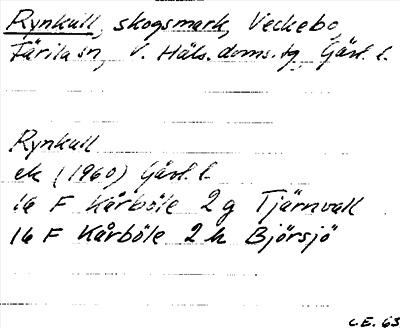 Rynkull, skogsmark, Veckebo,
Färila sn, V. Häls. doms.sg, Gävl. l.
Rynkull
ek (1960) Gävl. l.
16 F Kårböle 2 g Tjärnvall
16 F Kårböle 2 h Björsjö
C.E. 63